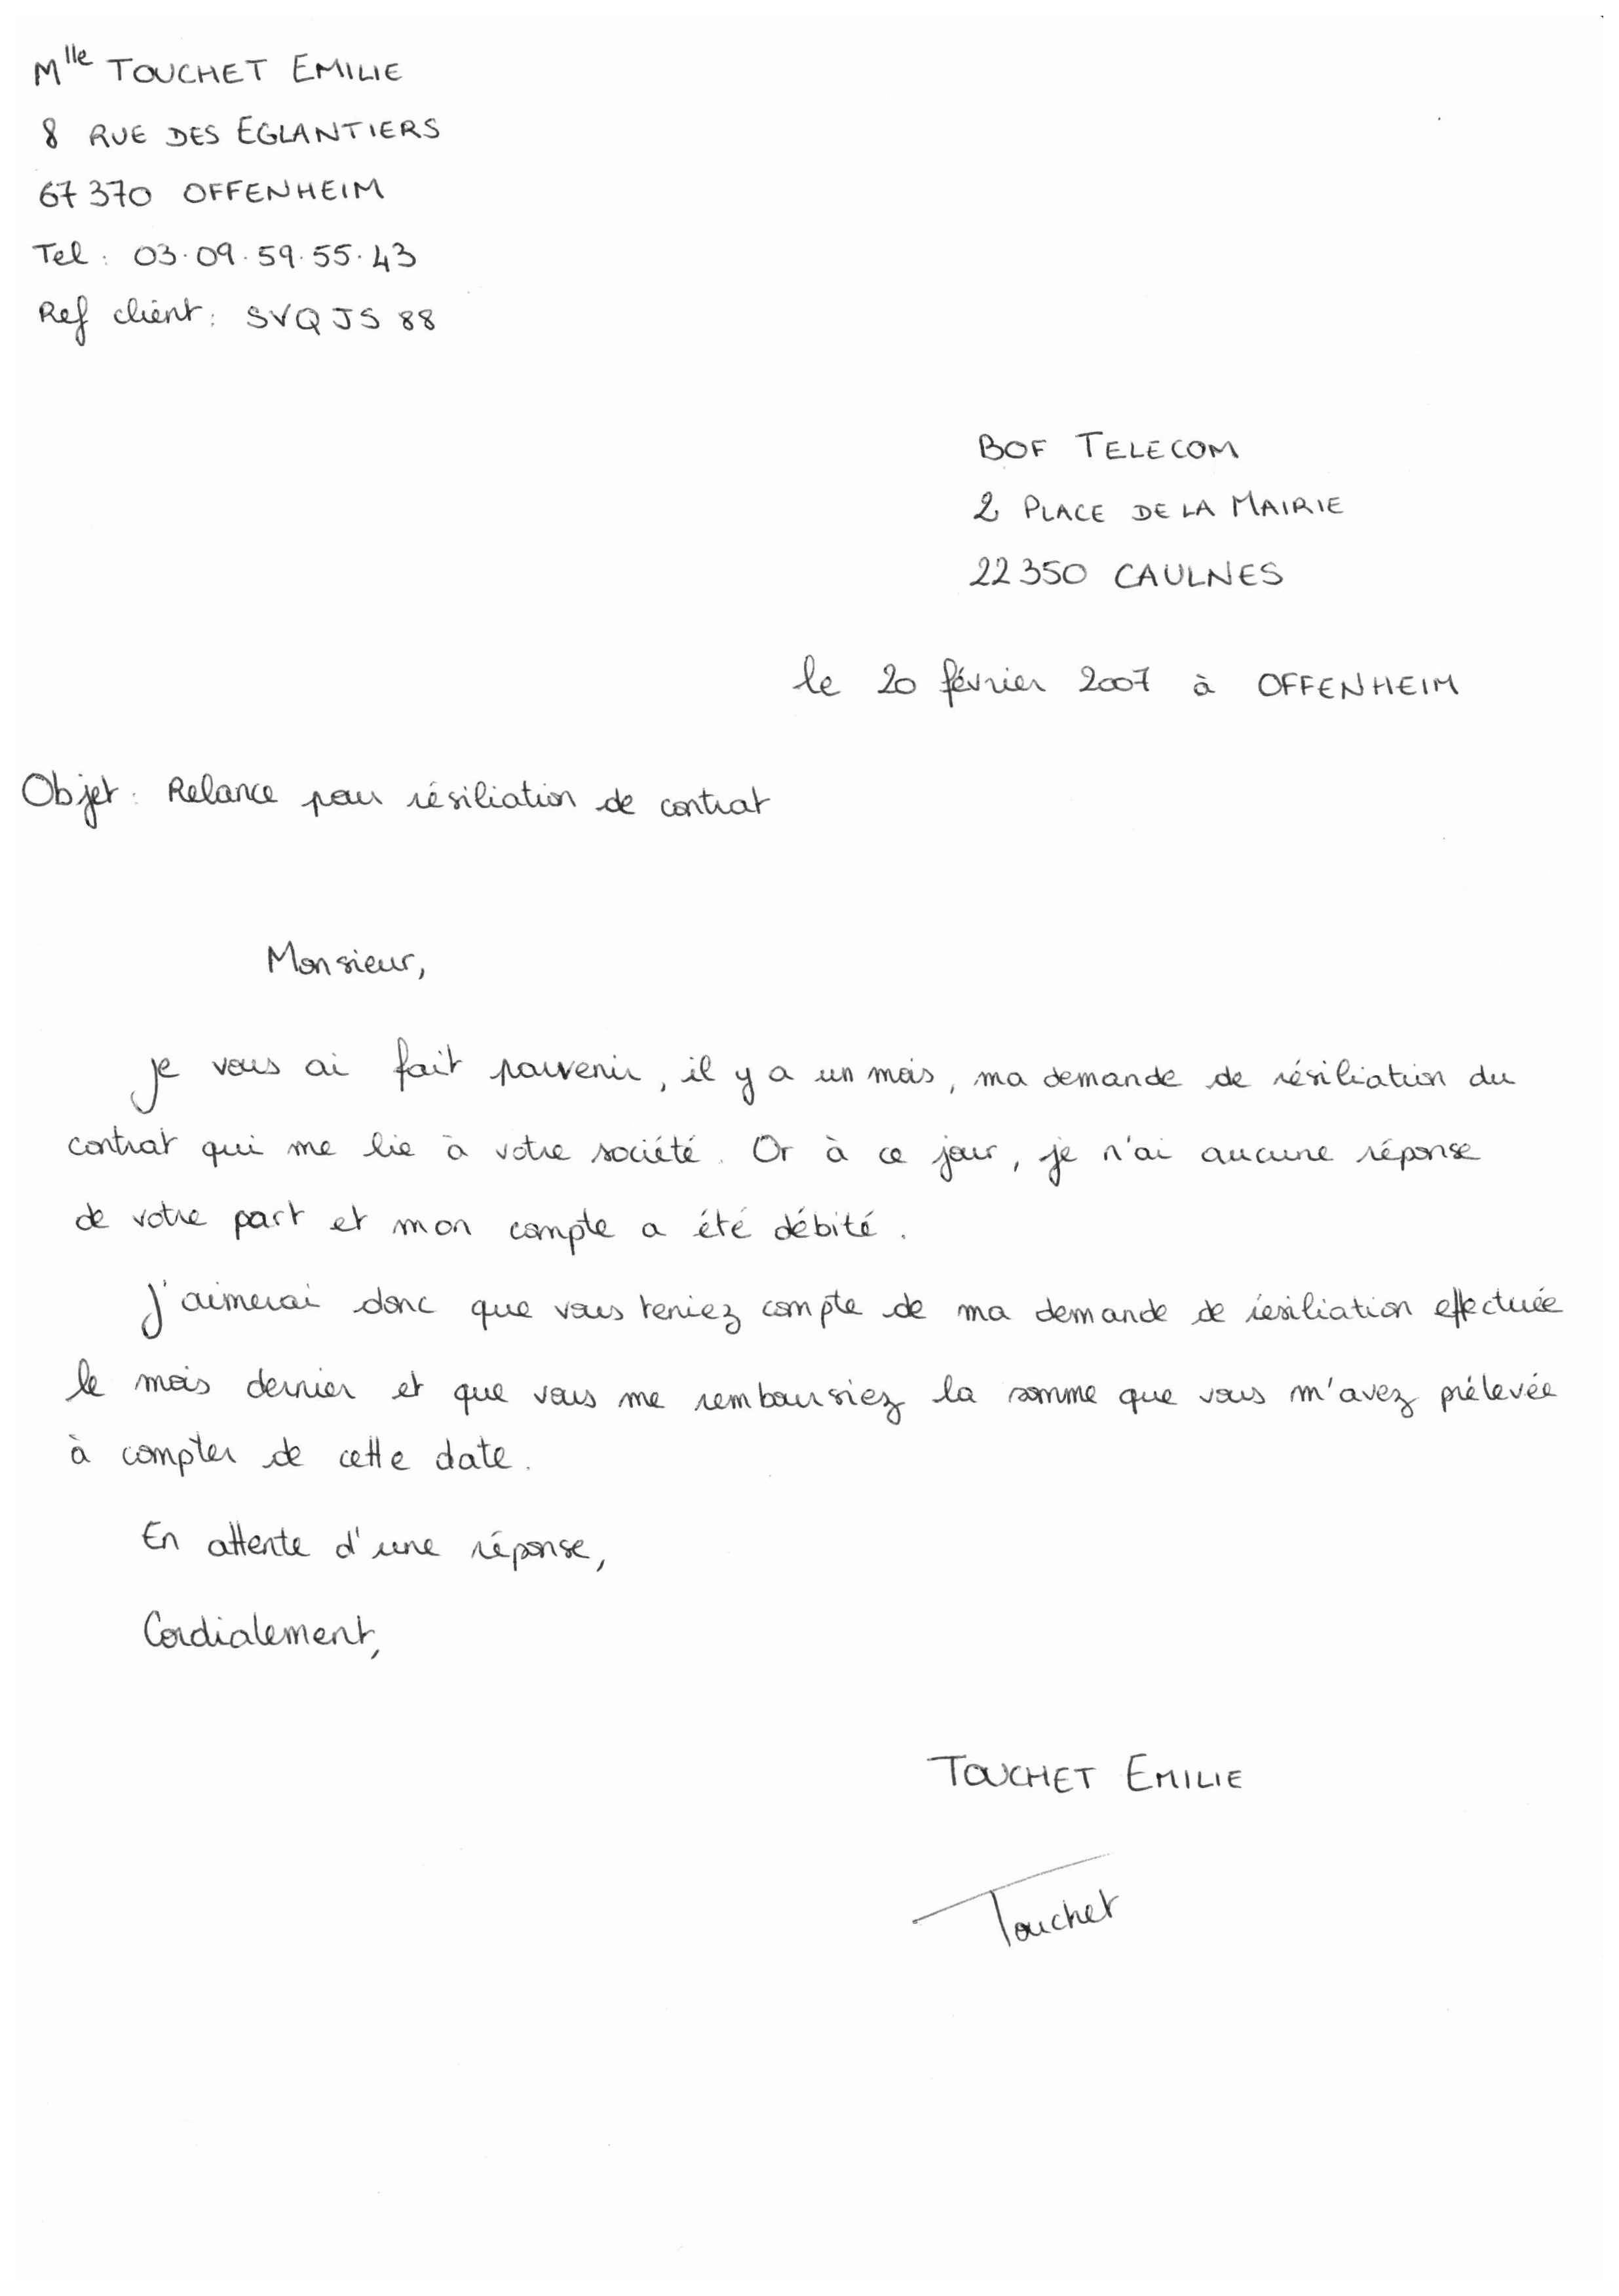 Mlle TOUCHET EMILIE
8 RUE DES EGLANTIERS
67370 OFFENHEIM
Tel : 03.09.59.55.43
Ref client : SVQJS88
BOF TELECOM
2 PLACE DE LA MAIRIE
22350 CAULNES
le 20 février 2007 à OFFENHEIM
Objet : Relance pour résiliation de contrat
Monsieur,
je vous ai fait parvenir, il y a un mois, ma demande de résiliation du
contrat qui me lie à votre société. Or à ce jour, je n'ai aucune réponse
de votre part et mon compte a été débité.
J'aimerai donc que vous teniez compte de ma demande de résiliation effectuée
le mois dernier et que vous me remboursiez la somme que vous m'avez prélevée
à compter de cette date.
En attente d'une réponse,
Cordialement,
TOUCHET EMILIE
Touchet